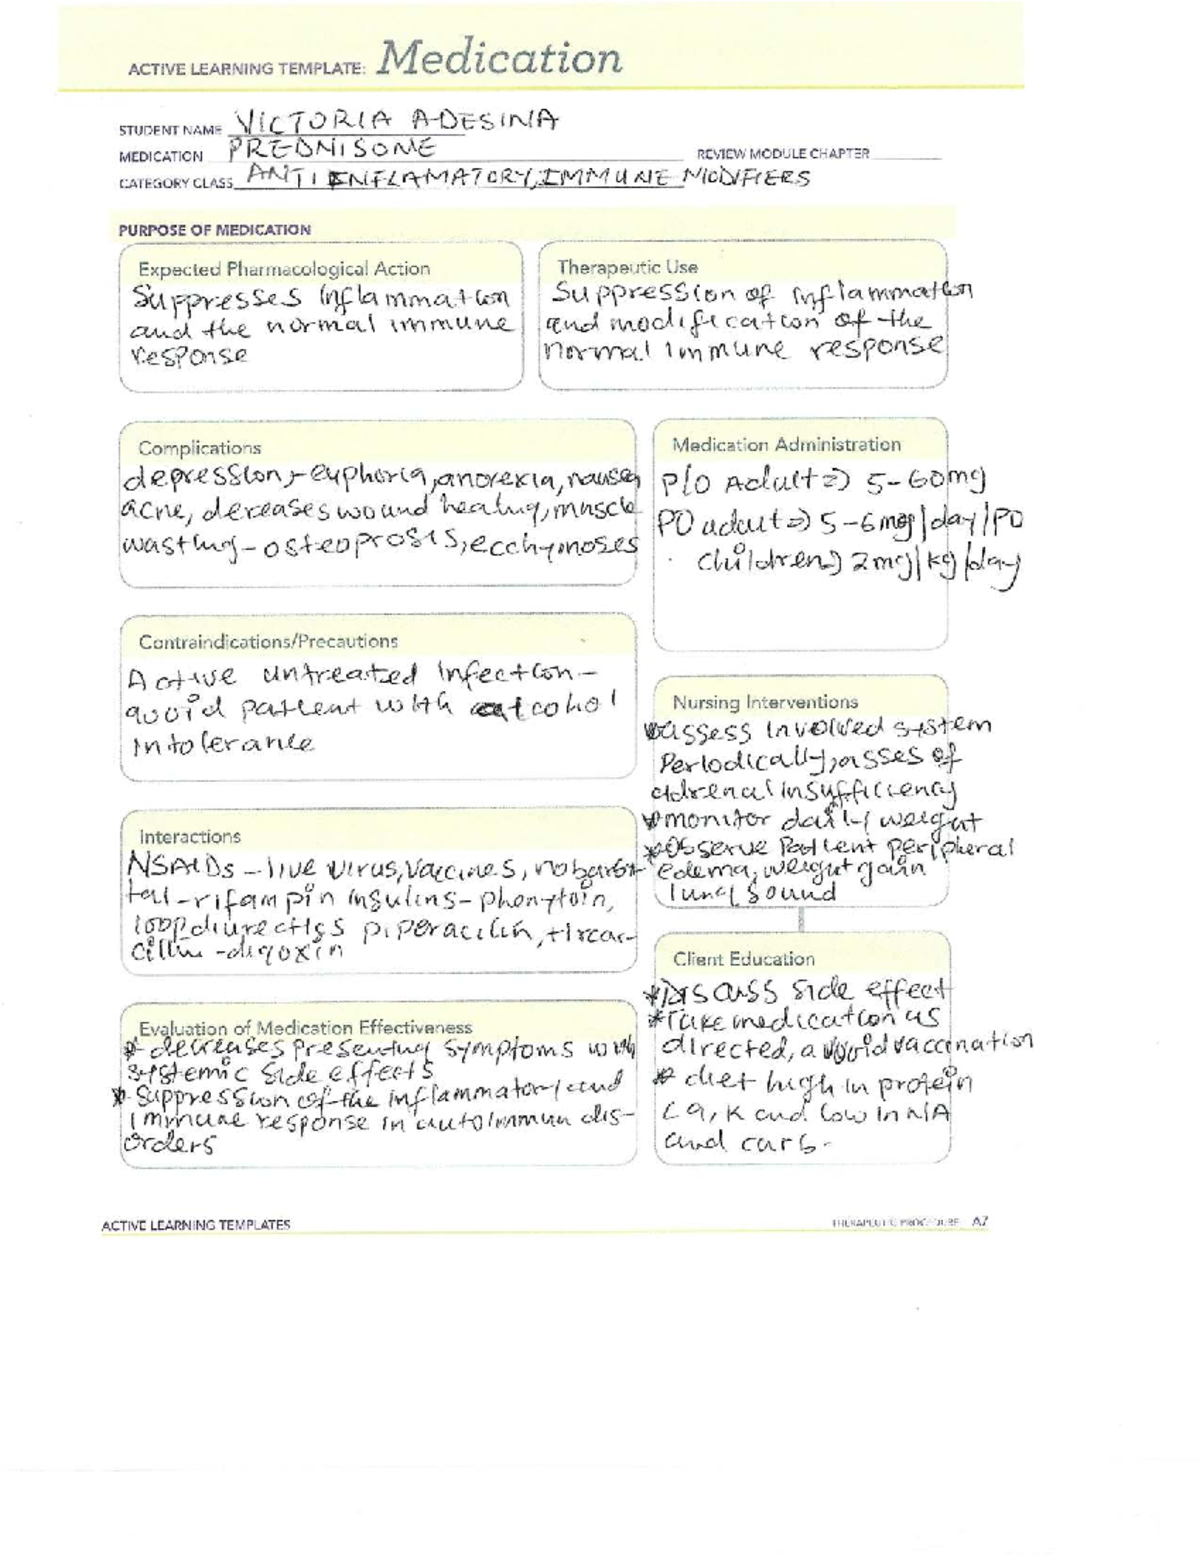 ACTIVE LEARNING TEMPLATE: Medication
STUDENT NAME VICTORIA ADESINA
MEDICATION PREDNISONE REVIEW MODULE CHAPTER
CATEGORY CLASS ANTI INFLAMATORY, IMMUNE MODIFIERS
PURPOSE OF MEDICATION
Expected Pharmacological Action
Suppresses inflammation
and the normal immune
response
Therapeutic Use
Suppression of inflammation
and modification of the
normal immune response
Complications
depression, -euphoria, anorexia, nausea
acne, decreases wound healing, muscle
wasting - osteoprosis, ecchymoses
Medication Administration
P/O Adult => 5-60mg
PO adult => 5-6mg/day/PO
children => 2mg/kg/day
Contraindications/Precautions
Active untreated infection -
avoid patient with alcohol
intolerance
Nursing Interventions
assess involved system
Periodically, asses of
adrenal insufficiency
* monitor daily weight
* Observe Patient peripheral
edema, weight gain
lung sound
Interactions
NSAIDs - live virus, vaccines,
tal - rifampin insulins - phenytoin,
loop diuretics piperacilin, ticar-
cillin - digoxin
Client Education
* Discuss side effect
* Take medication as
directed, avoid vaccination
* diet high in protein
ca, K and low in NA
and carb.
Evaluation of Medication Effectiveness
* decreases presenting symptoms with
systemic side effects
* Suppression of the inflammatory and
immune response in autoimmun dis-
orders
ACTIVE LEARNING TEMPLATES
THERAPEUTIC PROCEDURE A7